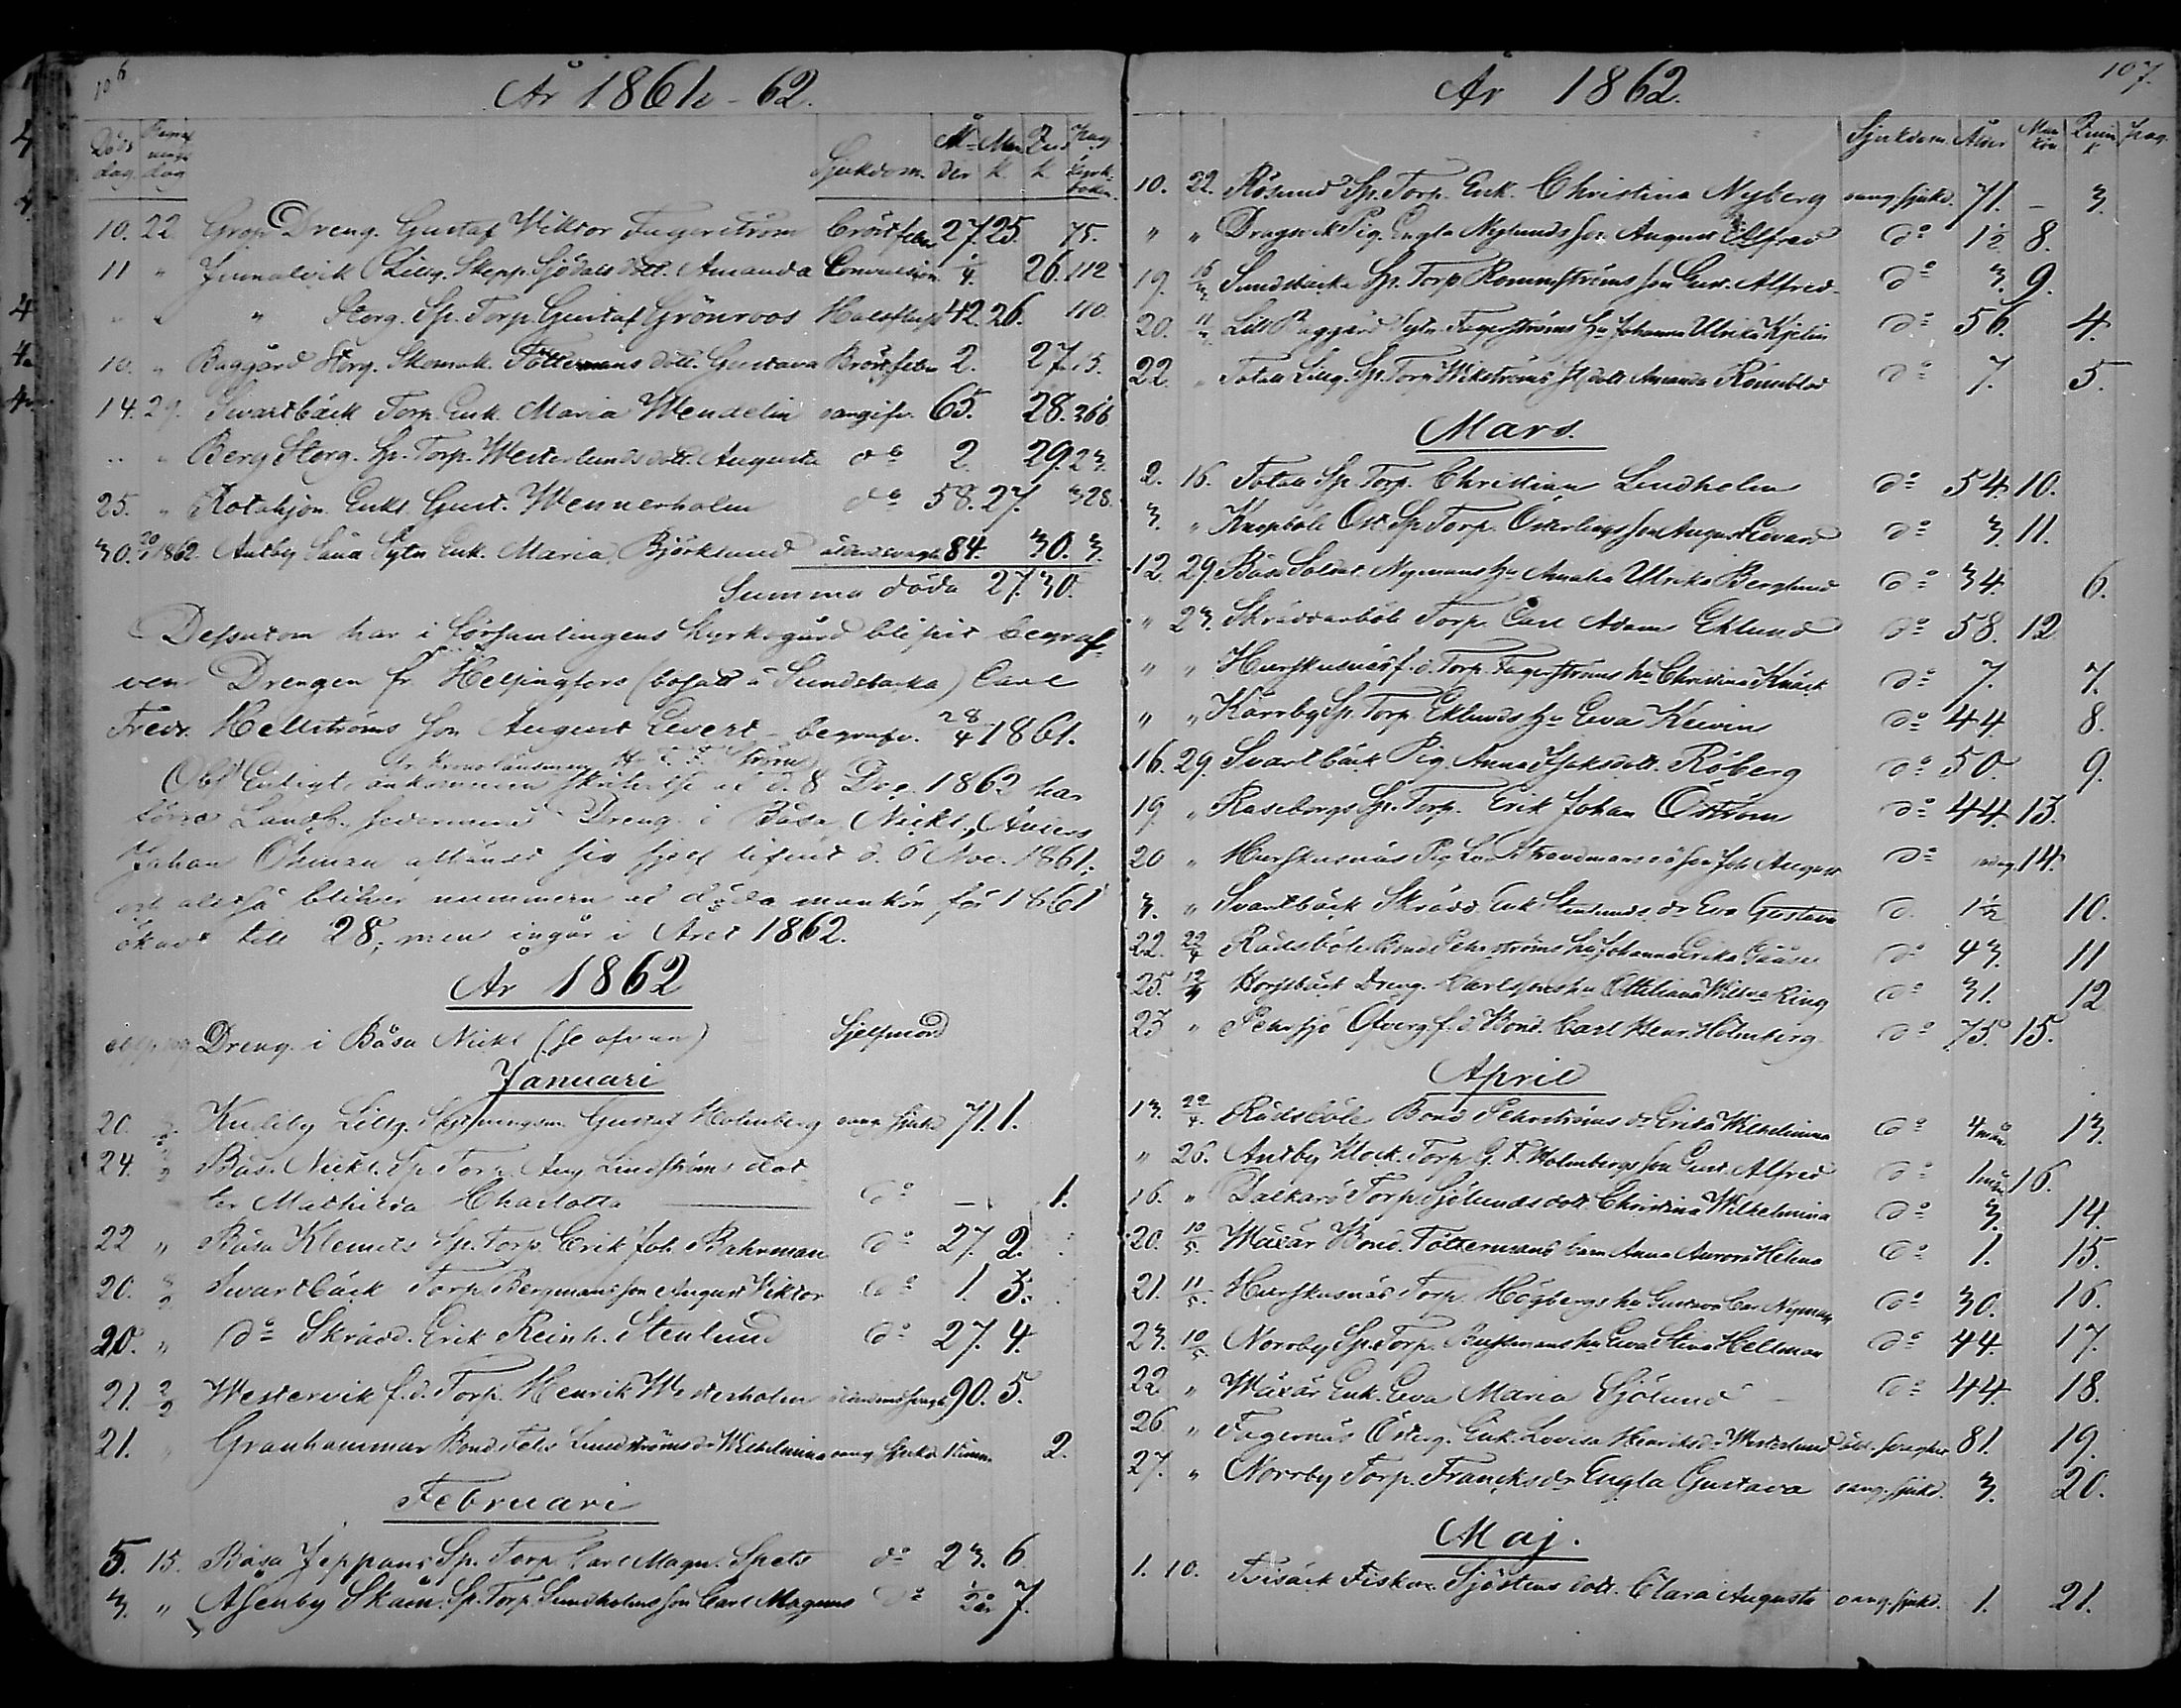 106
År 1861 - 62.
Döds dag. Begrafnings dag Sjukdom. Ålder Mank. Qvk. pag. kyrkboken.
10. 22. Dreng. Gustaf Wiktor Fagerström Bröstfeber 27. 25. 75.
11 " Lillg. Skepp. Sjödals dott. Amanda Convulsion 1/4. 26. 112
" " " Storg. Sp. Torp. Gustaf Grönroos Halsfluss 42. 26. 110.
10. " Baggård Storg. Skomak. Töttermans dott. Gustava Bröstfeber 2. 27. 15.
14. 29. Svartbäck Torp. Enk. Maria Wendelin oangifv. 65. 28. 266
" " Berg Storg. Sp. Torp. Westerlunds dott. Augusta do 2. 29. 23.
25. " Rotehjon Enkl. Gust. Wennerholm do 58. 27. 328.
30. 20/1 1862. Antby Enk. Maria Björklund 84. 30. 3.
Summa döda 27. 30.
Dessutom har i församlingens kyrkogård blifvit begraf-
ven Drengen fr. Helsingfors (bosatt å Sundsbacka) Carl
Fredr. Hellströms son August Evert - begrafv. 28/4 1861.
Obs! Enligt ankommen skrifvelse af d. 8 Dec. 1862 har
Dreng i Båsa, Nickl.,
Johan Öhman afhändt sig sjelf lifvet d. 6 Nov. 1861;
och altså blifver nummern af döda mankön för 1861
ökadt till 28; men ingår i Året 1862.
År 1862
Dreng. i Båsa Nickl (se ofvan) Sjelfmord
Januari
20. Lillg. Gustaf Holmberg oang. sjukd 71. 1.
24. Båsa Nickl. Sp. Torp. Aug. Lindströms dot-
ter Mathilda Charlotta do - 1.
22 " Båsa Klemets Sp. Torp. Erik Joh. Bahrman do 27. 2.
20. 8/2 Svartbäck Torp. Bergmans son August Viktor do 1. 3.
20. " do Skrädd. Erik Reinh. Stenlund do 27. 4.
21. 2/2 Westervik f.d. Torp. Henrik Westerholm 90. 5.
21. " Granhammar Bond. Lundströms dr Wilhelmina oang. sjukd. 2.
Februari
5. 15. Båsa Jeppans Sp. Torp. Carl Magn. Spets do 23. 6
3. " Åsenby Skam. Sp. Torp. Sundholms son Carl Magnus do 1/2 år 7.
År 1862.
107.
Sjukdom. Ålder Mankön Qvink. pag.
10. 22. Rösund Sp. Torp. Enk. Christina Nyberg oang. sjukd. 71. - 3.
" " Dragsvik Pig. Engla Nylunds son August Alfred do 1 1/2 8.
19. 16/3 Sundsbacka Sp. Torp. Rommströms son Gust. Alfred do 3. 9.
20. Lill Baggård Fagerströms hu Johanna Ulrika Kjelin do 56. 4.
22. " Totall Lillg. Sp. Torp. Wikströms dott. Amanda Rönnblad do 7. 5.
Mars.
2. 16. Totall Sp. Torp. Christian Lindholm do 54. 10.
3. " Knapböle Öst. Sp. Torp. Österlings son August Edvard do 3. 11.
12. 29. Båsa Soldat. Nymans hu Amalia Ulrika Berglund do 34. 6.
" 23. Skräddarböle Torp. Carl Adam Eklund do 58. 12
" " Horskusnäs f.d. Torp. Fagerströms hu Christina Knäck do 7. 7.
" " Kärrby Sp. Torp. Eklunds hu Eva Kevin do 44 8.
16. 29. Svartbäck Pig. Anna Isaksdott. Röberg do 50. 9.
19. " Raseborgs Sp. Torp. Erik Johan Öström do 44. 13.
20 " Horskusnäs Pig. Lov. Strandmans son Joh. August do 14.
3. " Svartbäck Skrädd. Enk. Stenlunds dr Eva Gustava do 1 1/2 10.
22. 22/4 Rådsböle Bond. Pehrströms hu Johanna Erika do 43. 11
25. 12/4 Horsbäck Dreng. Carlssons hu Ottiliana Wilhma Ring do 31. 12
23 " Pehrsjö Öfverg. f.d. Bond. Carl Henr. Holmberg do 75. 15.
April
13. 22/4. Rådsböle Bond. Pehrströms dr Erika Wilhelmina do 4 mån 13.
" 26. Antby Klock. Torp. G. F. Holmbergs son Gust. Alfred do 1 mån 16.
16. " Dalkarö Torp. Sjölunds dott. Christina Wilhelmina do 3. 14.
20. 10/5. Wäxär Bond. Töttermans barn Anna Aurora Helena do 1. 15.
21. 11/5. Horskusnäs Torp. Högbergs hu Gustava Nyman do 30. 16.
23. 10/5. Norrby Sp. Torp. Bussmans hu Eva Stina Hellman do 44. 17.
22. " Wäxär Enk. Eva Maria Sjölund do 44. 18.
26. " Fagernäs Österg. Enk. Lovisa Henriksdr Westerlund åld. svaghet 81. 19.
27. " Norrby Torp. Francks dr Engla Gustava oang. sjukd. 3. 20.
Maj.
1. 10. Fiskar. Sjöstens dott. Clara Augusta oang. sjukd. 1. 21.